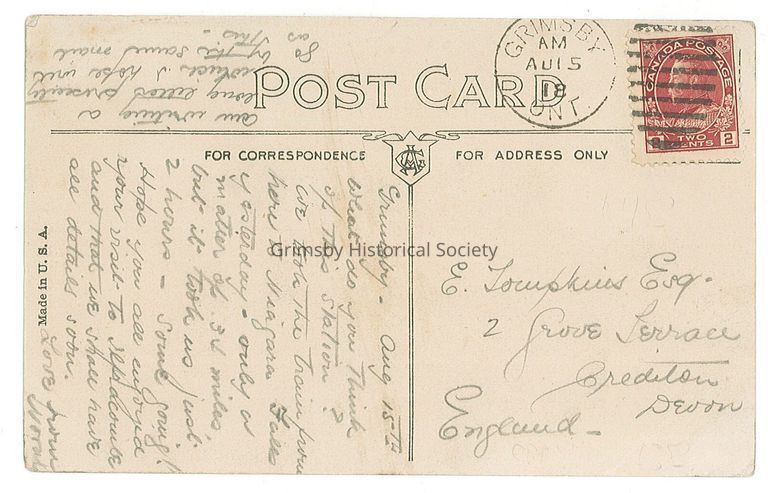 POST CARD
GRIMSBY
AM
AU 15
18
ONT.
CANADA POSTAGE
2 TWO CENTS 2
FOR CORRESPONDENCE
FOR ADDRESS ONLY
Made in U. S. A.
Grimsby - Aug 15TH
What do you think
of this Station?
We took the train from
here to Niagara Falls
yesterday - only a
matter of 31 miles,
but it took us just
2 hours - Some going!
Hope you all enjoyed
your visit to
and that we shall have
all details soon.
Love from
Norah
am writing a
long letter presently
which I hope will
go by the same mail
as this -
E. Tompkins Esq.
2 Grove Terrace
Crediton
Devon
England -
Grimsby Historical Society